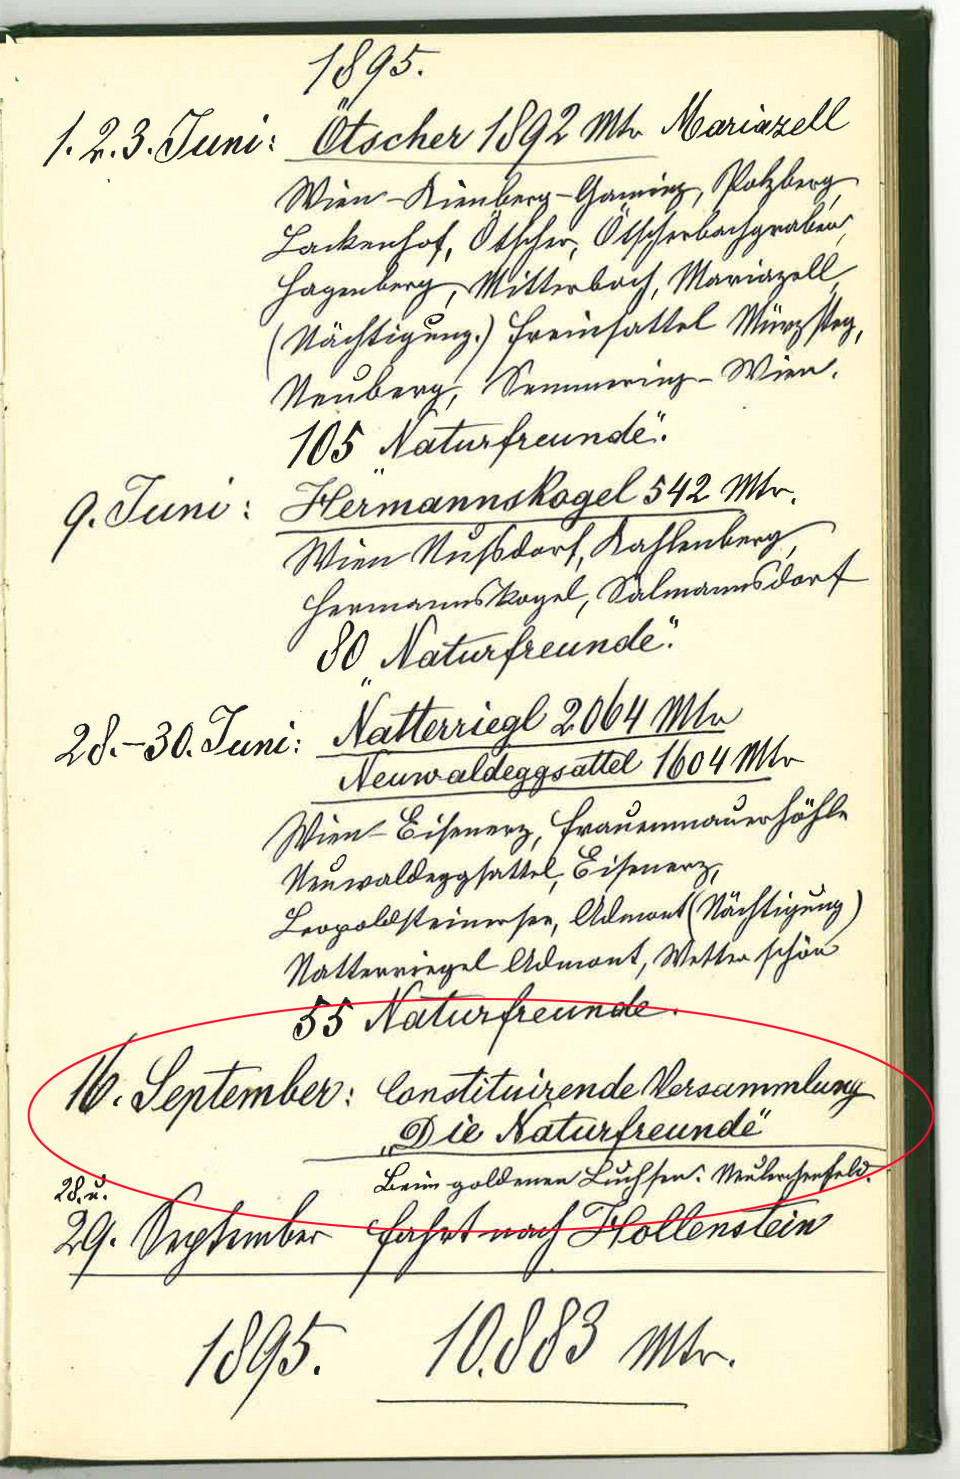 1895.
1. 2. 3. Juni: Ötscher 1892 Mtr Mariazell
Wien-Kienberg-Gaming, Polzberg,
Lackenhof, Ötscher, Ötscherbachgraben,
Hagenberg, Mitterbach, Mariazell
(Nächtigung.) Freinsattel Mürzsteg,
Neuberg, Semmering-Wien.
105 "Naturfreunde".
9. Juni: Hermannskogel 542 Mtr.
Wien Nußdorf, Kahlenberg,
Hermannskogel, Salmannsdorf
80 "Naturfreunde".
28.-30. Juni: Natterriegl 2064 Mtr
Neuwaldeggsattel 1604 Mtr
Wien-Eisenerz, Frauenmauerhöhle
Neuwaldeggsattel, Eisenerz,
Leopoldsteinersee, Admont (Nächtigung)
Natterriegel Admont, Wetter schön
55 Naturfreunde.
16. September: Constituirende Versammlung
„Die Naturfreunde"
Beim goldenen Luchsen: Neulerchenfeld.
28. u.
29. September Fahrt nach Hollenstein
1895. 10.883 Mtr.